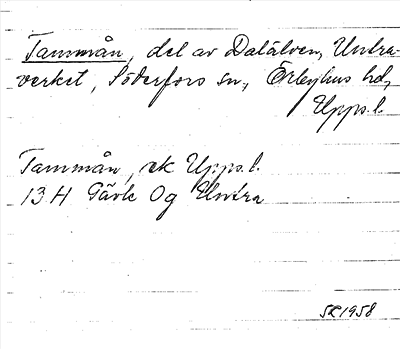 Tammån, del av Dalälven, Untra-
verket, Söderfors sn, Örbyhus hd,
Upps.l.
Tammån, ek Upps.l.
13 H Gävle 0g Untra
SR 1958